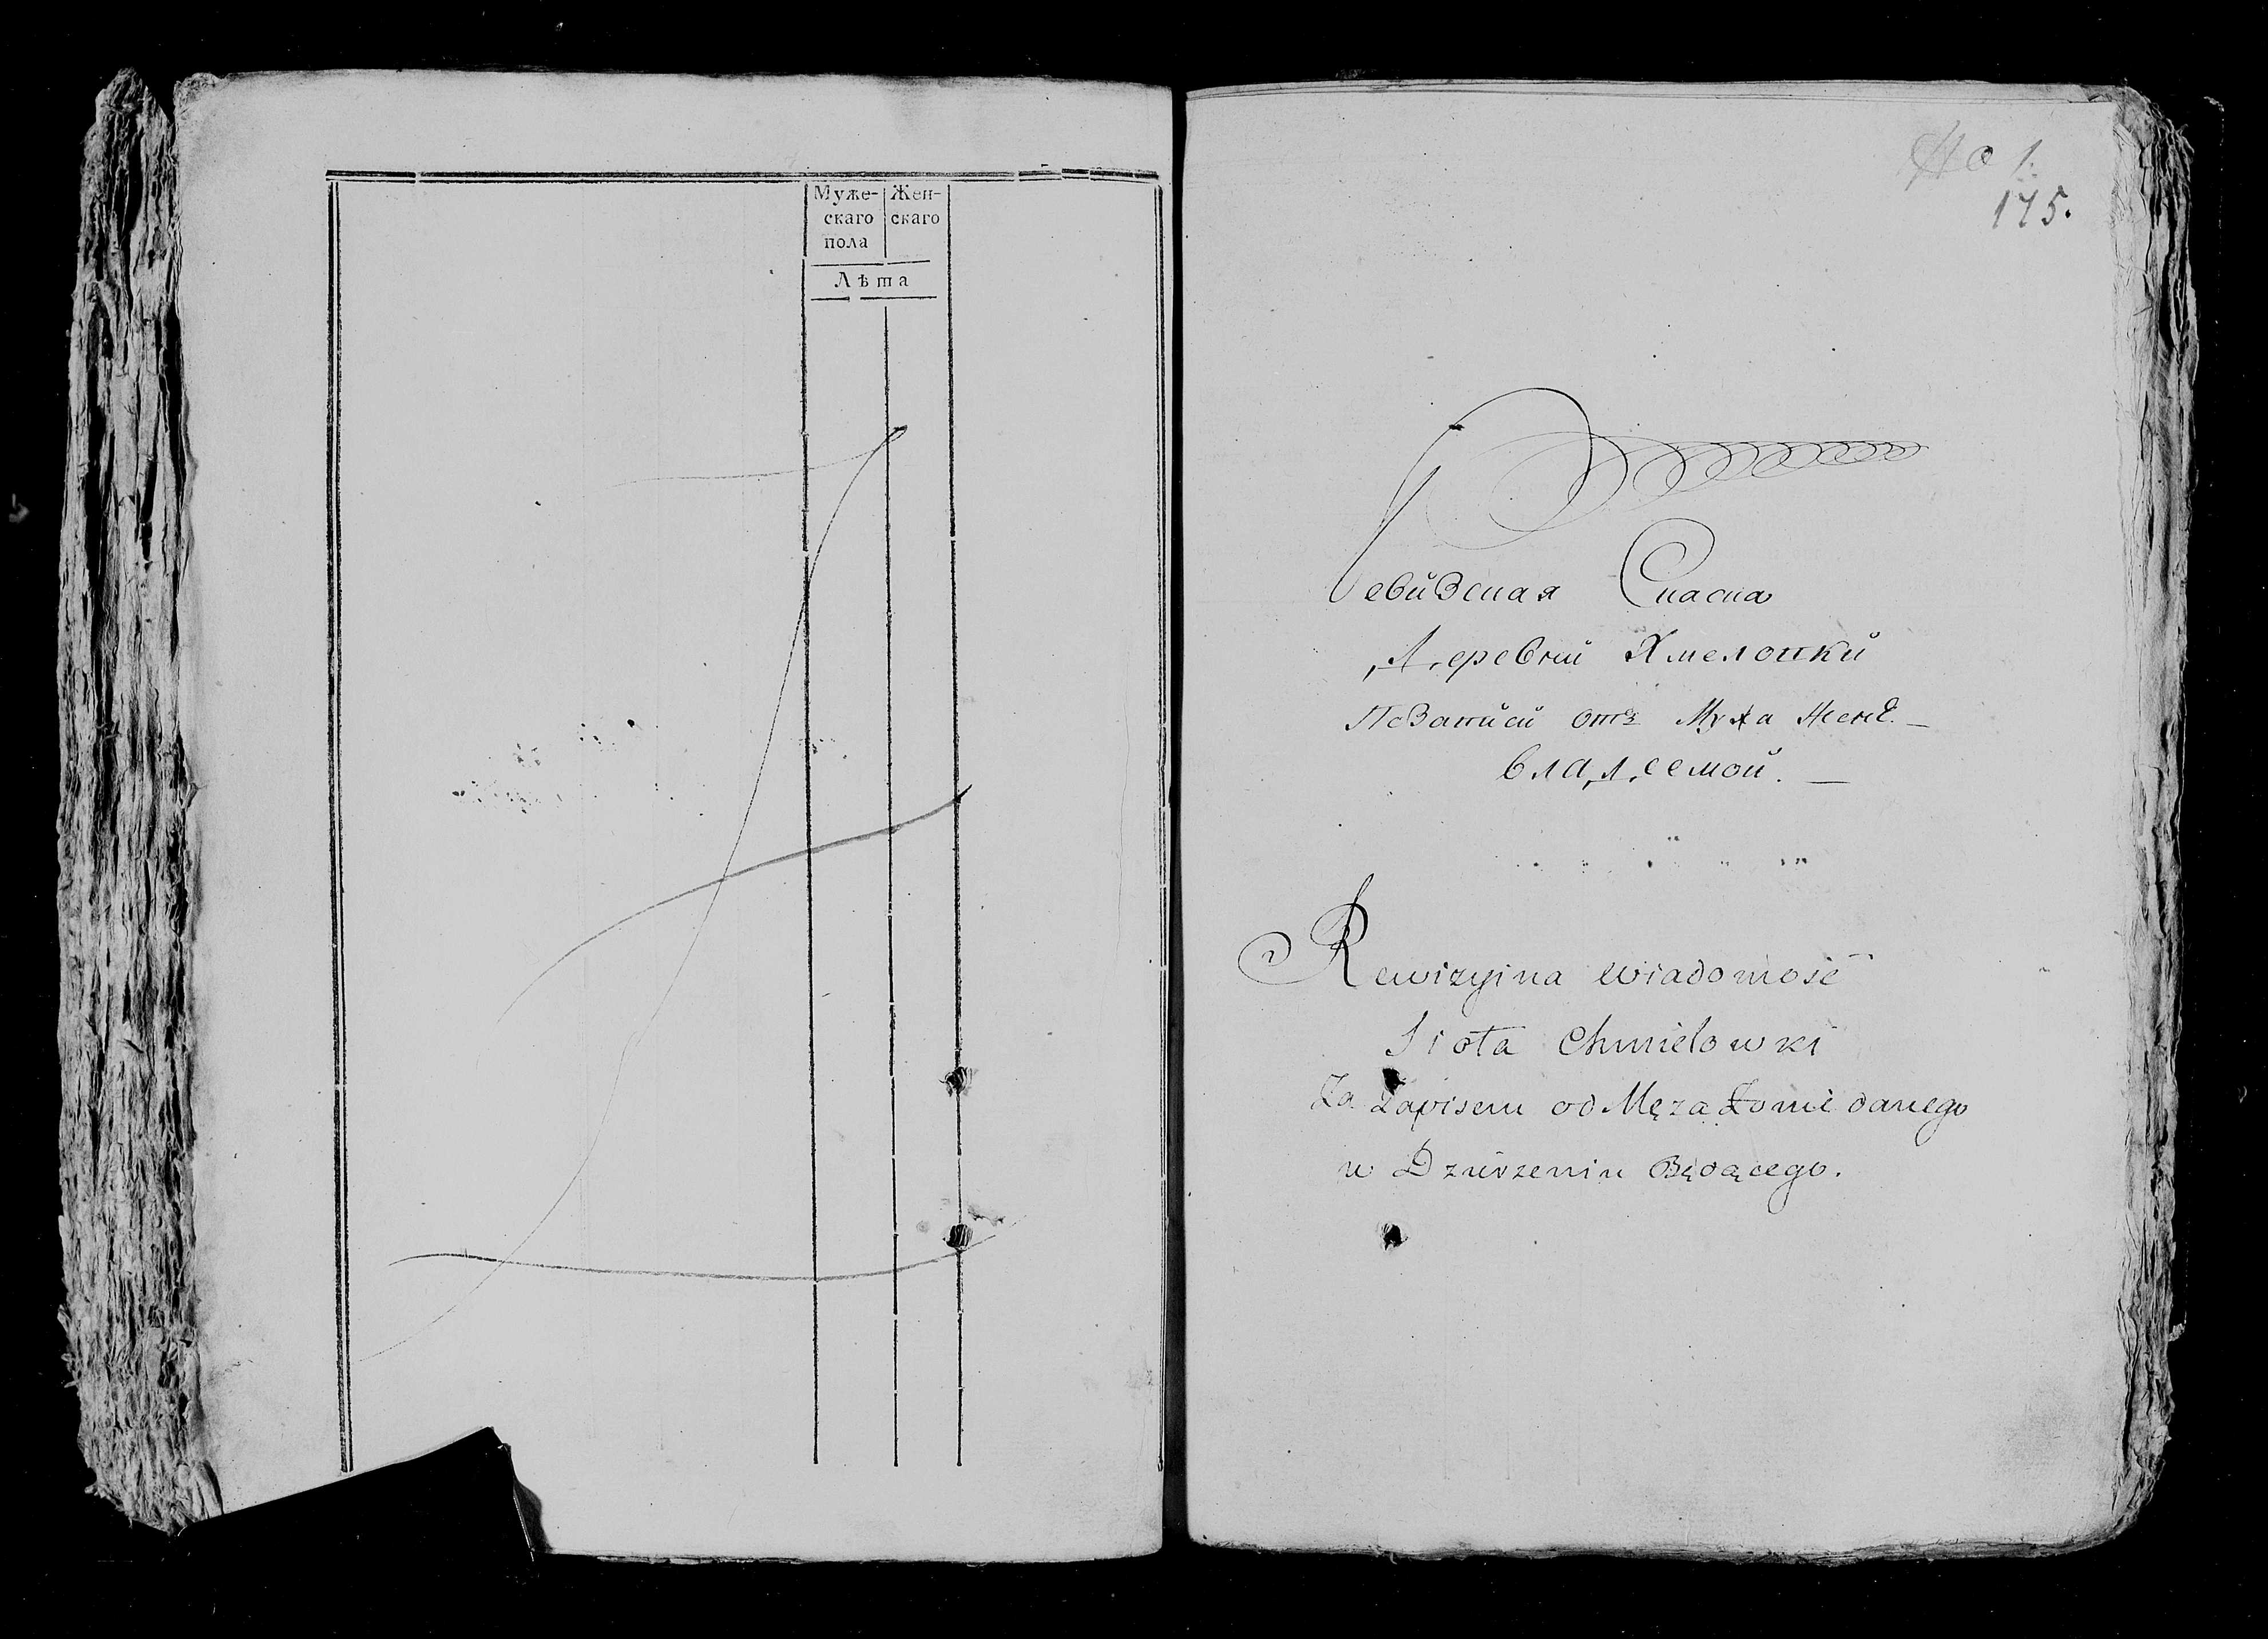 Муже-
скаго
пола
Жен-
скаго
Лѣта
No 1.
175.
Ревизская Сказка
Деревни Хмелювки
По Записи отъ Мужа Женѣ. —
владеемой. —
Rewizyina wiadomość
Sioła Chmielowki
Za Zapisem od Męza Zonie danego
w Dzierzeniu Będącego.